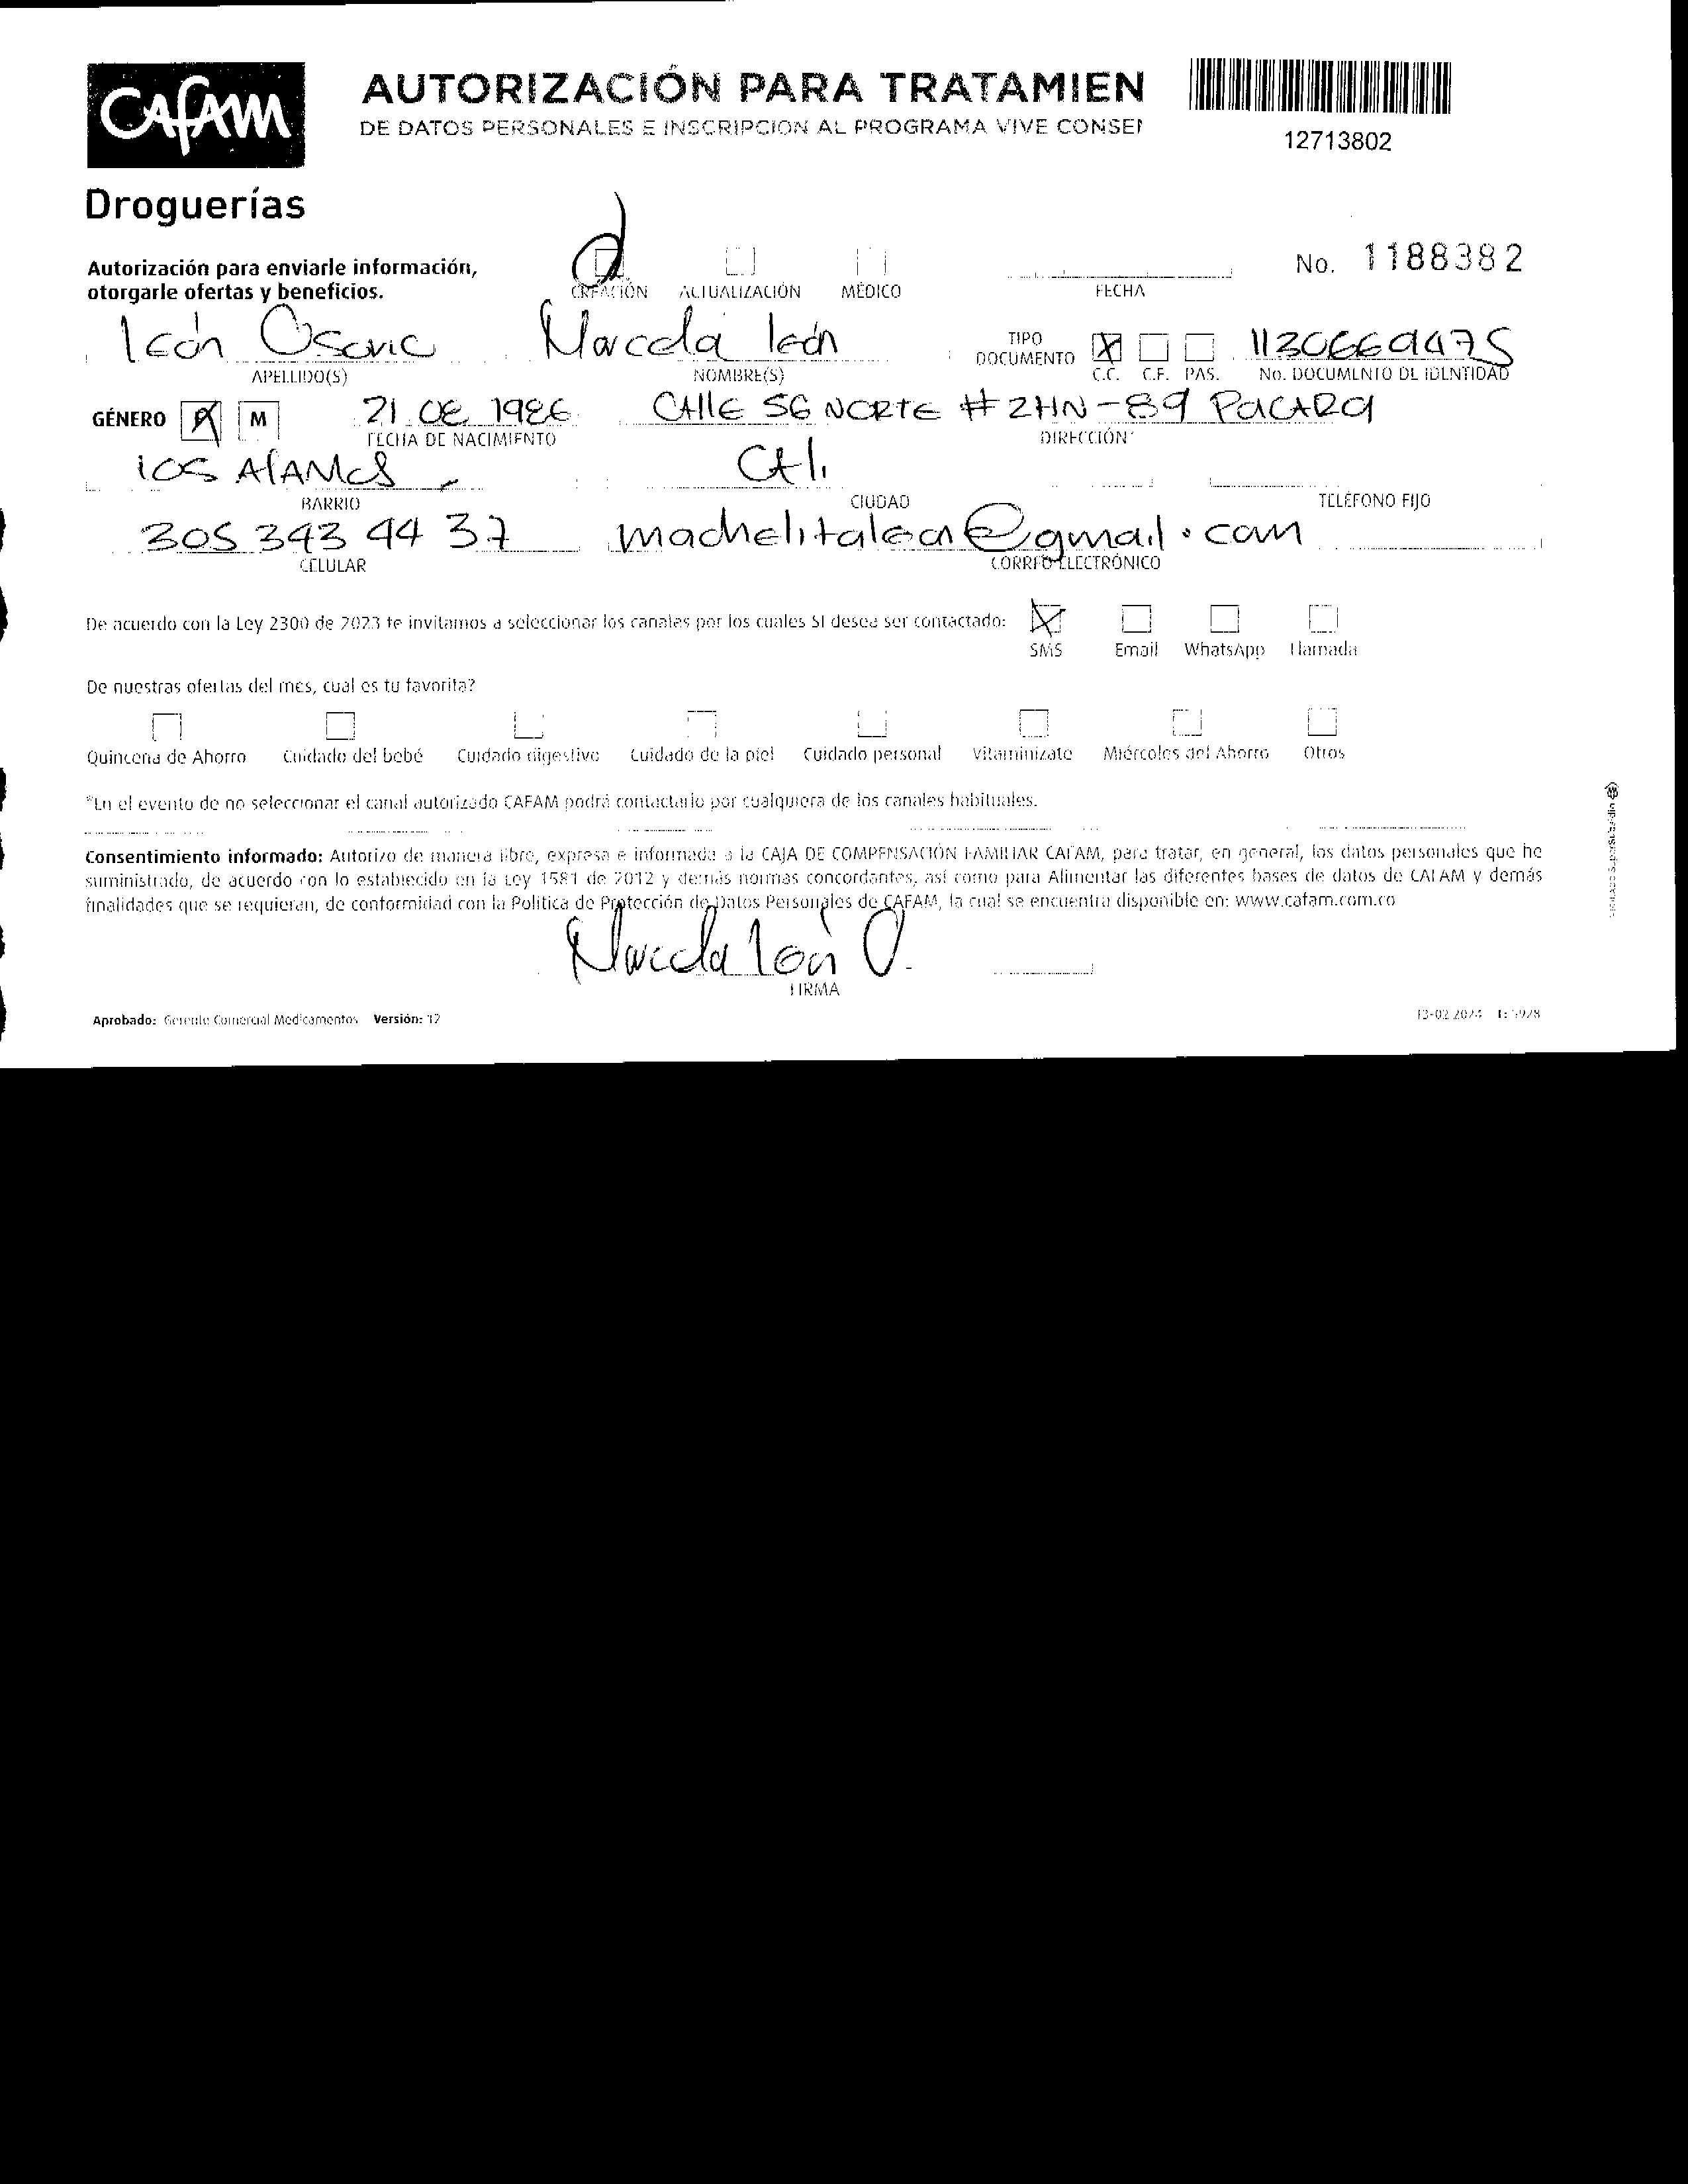 CAFAM
Droguerías
AUTORIZACIÓN PARA TRATAMIEN
DE DATOS PERSONALES E INSCRIPCION AL PROGRAMA VIVE CONSE
12713802
Autorización para enviarle información,
otorgarle ofertas y beneficios.
CREACIÓN ACTUALIZACIÓN MÉDICO FECHA No. 1188382
león Osorio Marcela león TIPO DOCUMENTO X 1130669475
APELLIDO(S) NOMBRE(S) C.C. C.E. PAS. No. DOCUMENTO DE IDENTIDAD
GÉNERO M 21 08 1986 CAllE 56 NORTE # 2HN-89 PACARA
FECHA DE NACIMIENTO DIRECCIÓN*
lOS AlAMOS CAli
BARRIO CIUDAD TELÉFONO FIJO
305 343 44 37 machelitaleon@gmail.com
CELULAR CORREO ELECTRÓNICO
De acuerdo con la Ley 2300 de 2023 te invitamos a seleccionar los canales por los cuales SI desea ser contactado: X
SMS Email WhatsApp Llamada
De nuestras ofertas del mes, cual es tu favorita?
Quincena de Ahorro Cuidado del bebé Cuidado digestivo Cuidado de la piel Cuidado personal Vitaminízate Miércoles del Ahorro Otros
*En el evento de no seleccionar el canal autorizado CAFAM podrá contactarlo por cualquiera de los canales habituales.
Consentimiento informado: Autorizo de manera libre, expresa e informada a la CAJA DE COMPENSACIÓN FAMILIAR CAFAM, para tratar, en general, los datos personales que he
suministrado, de acuerdo con lo establecido en la Ley 1581 de 2012 y demás normas concordantes, así como para Alimentar las diferentes bases de datos de CAFAM y demás
finalidades que se requieran, de conformidad con la Politica de Protección de Datos Personales de CAFAM, la cual se encuentra disponible en: www.cafam.com.co
Marcela león O.
FIRMA
Aprobado: Gerente Comercial Medicamentos Versión: 12
13-02-2024
VIGILADO SuperSubsidio